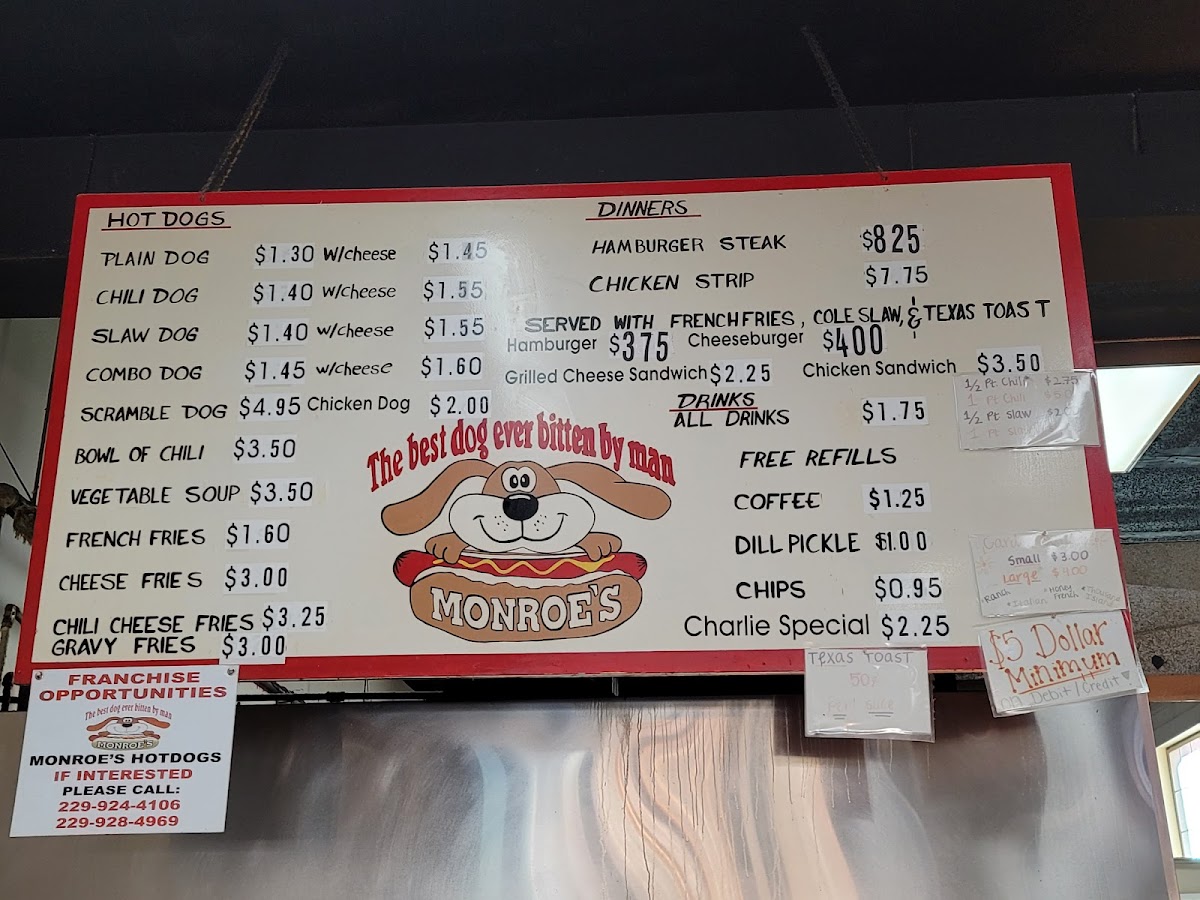 HOT DOGS
PLAIN DOG $1.30 W/cheese $1.45
CHILI DOG $1.40 W/cheese $1.55
SLAW DOG $1.40 W/cheese $1.55
COMBO DOG $1.45 W/cheese $1.60
SCRAMBLE DOG $4.95 Chicken Dog $2.00
BOWL OF CHILI $3.50
VEGETABLE SOUP $3.50
FRENCH FRIES $1.60
CHEESE FRIES $3.00
CHILI CHEESE FRIES $3.25
GRAVY FRIES $3.00
DINNERS
HAMBURGER STEAK $825
CHICKEN STRIP $7.75
SERVED WITH FRENCH FRIES, COLE SLAW, & TEXAS TOAST
Hamburger $375 Cheeseburger $400
Grilled Cheese Sandwich $2.25 Chicken Sandwich $3.50
DRINKS
ALL DRINKS $1.75
FREE REFILLS
COFFEE $1.25
DILL PICKLE $1.00
CHIPS $0.95
Charlie Special $2.25
The best dog ever bitten by man
MONROE'S
1/2 Pt Chili $2.75
1 Pt Chili
1/2 Pt Slaw
1 Pt
Small $3.00
Large
Ranch Italian Honey French
$5 Dollar
Minimum
on Debit/Credit
Texas Toast
50¢
Per slice
FRANCHISE
OPPORTUNITIES
The best dog ever bitten by man
MONROE'S
MONROE'S HOTDOGS
IF INTERESTED
PLEASE CALL:
229-924-4106
229-928-4969